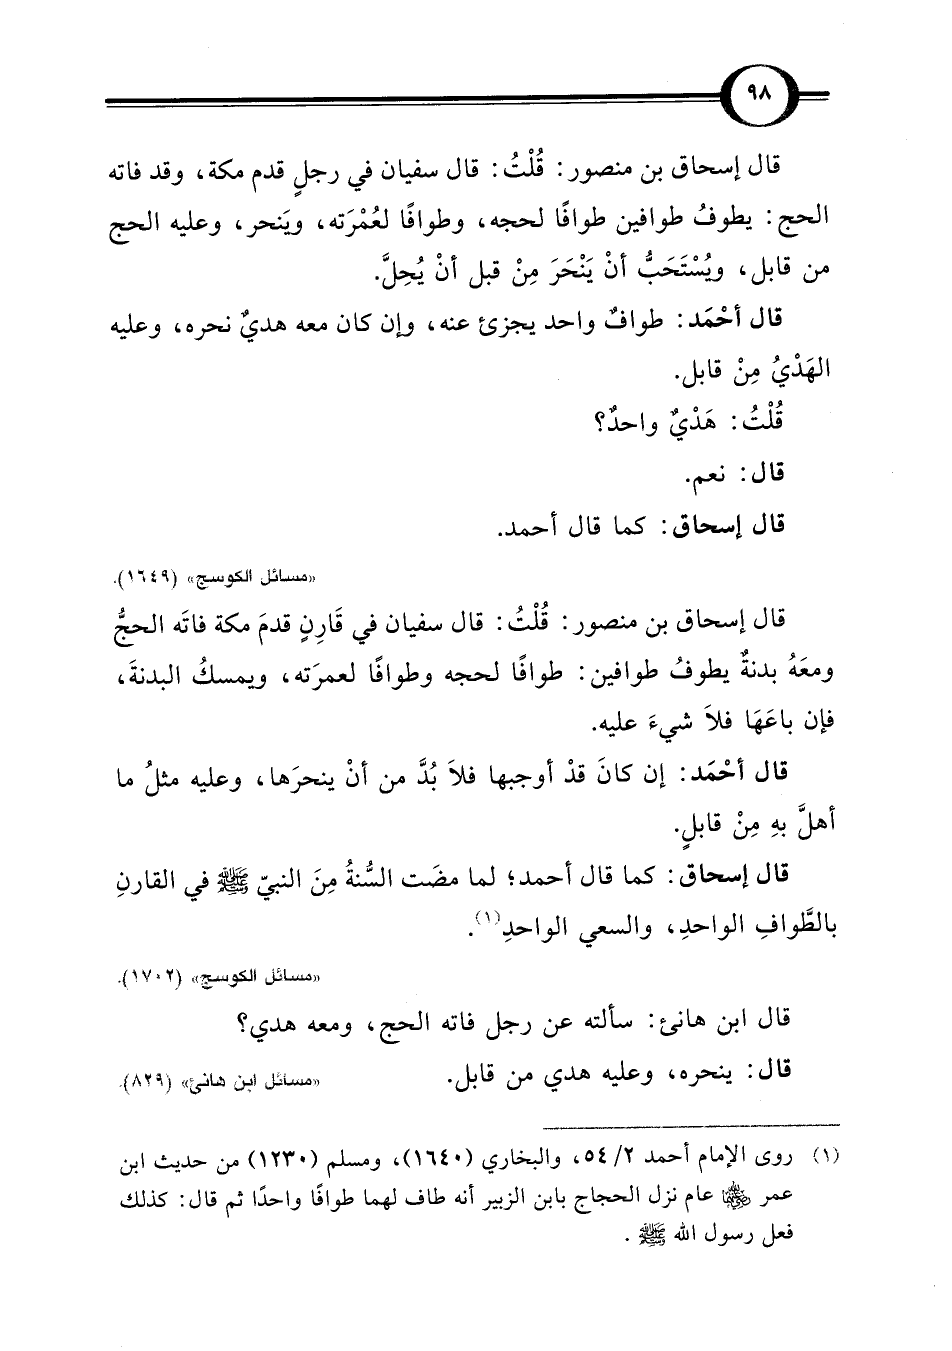 ٩٨
قال إسحاق بن منصور: قُلْتُ: قال سفيان في رجلٍ قدم مكة، وقد فاته
الحج: يطوفُ طوافين طوافًا لحجه، وطوافًا لعُمْرَته، ويَنحر، وعليه الحج
من قابل، ويُسْتَحَبُّ أنْ يَنْحَرَ مِنْ قبل أنْ يُحِلَّ.
قال أحْمَد: طوافٌ واحد يجزئ عنه، وإن كان معه هديٌ نحره، وعليه
الهَدْيُ مِنْ قابل.
قُلْتُ: هَدْيٌ واحدٌ؟
قال: نعم.
قال إسحاق: كما قال أحمد.
«مسائل الكوسج» (١٦٤٩).
قال إسحاق بن منصور: قُلْتُ: قال سفيان في قَارِنٍ قدمَ مكة فاتَه الحجُّ
ومعَهُ بدنةٌ يطوفُ طوافين: طوافًا لحجه وطوافًا لعمرَته، ويمسكُ البدنةَ،
فإن باعَهَا فلاَ شيءَ عليه.
قال أحْمَد: إن كانَ قدْ أوجبها فلاَ بُدَّ من أنْ ينحرَها، وعليه مثلُ ما
أهلَّ بهِ مِنْ قابلٍ.
قال إسحاق: كما قال أحمد؛ لما مضَت السُّنةُ مِنَ النبيّ ﷺ في القارنِ
بالطَّوافِ الواحدِ، والسعي الواحدِ(١).
«مسائل الكوسج» (١٧٠٢).
قال ابن هانئ: سألته عن رجل فاته الحج، ومعه هدي؟
قال: ينحره، وعليه هدي من قابل. «مسائل ابن هانئ» (٨٢٩).
(١) روى الإمام أحمد ٢/ ٥٤، والبخاري (١٦٤٠)، ومسلم (١٢٣٠) من حديث ابن
عمر رضي الله عنهما عام نزل الحجاج بابن الزبير أنه طاف لهما طوافًا واحدًا ثم قال: كذلك
فعل رسول الله ﷺ .